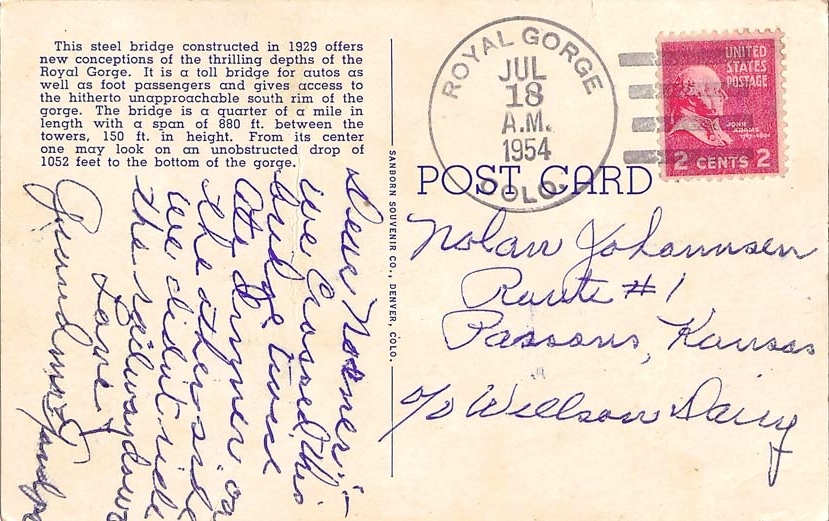 This steel bridge constructed in 1929 offers
new conceptions of the thrilling depths of the
Royal Gorge. It is a toll bridge for autos as
well as foot passengers and gives access to
the hitherto unapproachable south rim of the
gorge. The bridge is a quarter of a mile in
length with a span of 880 ft. between the
towers, 150 ft. in height. From its center
one may look on an unobstructed drop of
1052 feet to the bottom of the gorge.
Dear
we Crossed this
bridge twice
Ate Dinner on
the other side
we didn't ride
the railway down
Love
Grandma & Grandpa
SANBORN SOUVENIR CO., DENVER, COLO.
ROYAL GORGE
JUL
18
A.M.
1954
COLO.
UNITED
STATES
POSTAGE
JOHN
ADAMS
1797-1801
2 CENTS 2
POST CARD
Nolan Johannsen
Route #1
Parsons, Kansas
c/o Willson Dairy